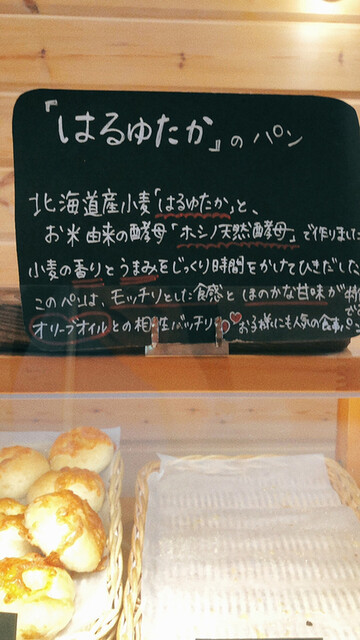 『はるゆたか』のパン
北海道産小麦「はるゆたか」と、
お米由来の酵母「ホシノ天然酵母」で作りました
小麦の香りとうまみをじっくり時間をかけてひきだした
このパンは、モッチリとした食感とほのかな甘味が特
オリーブオイルとの相性バッチリ♡お子様にも人気の食事パン